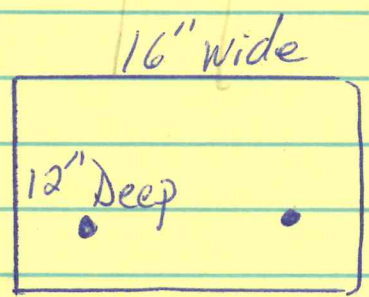 16" wide
12" Deep